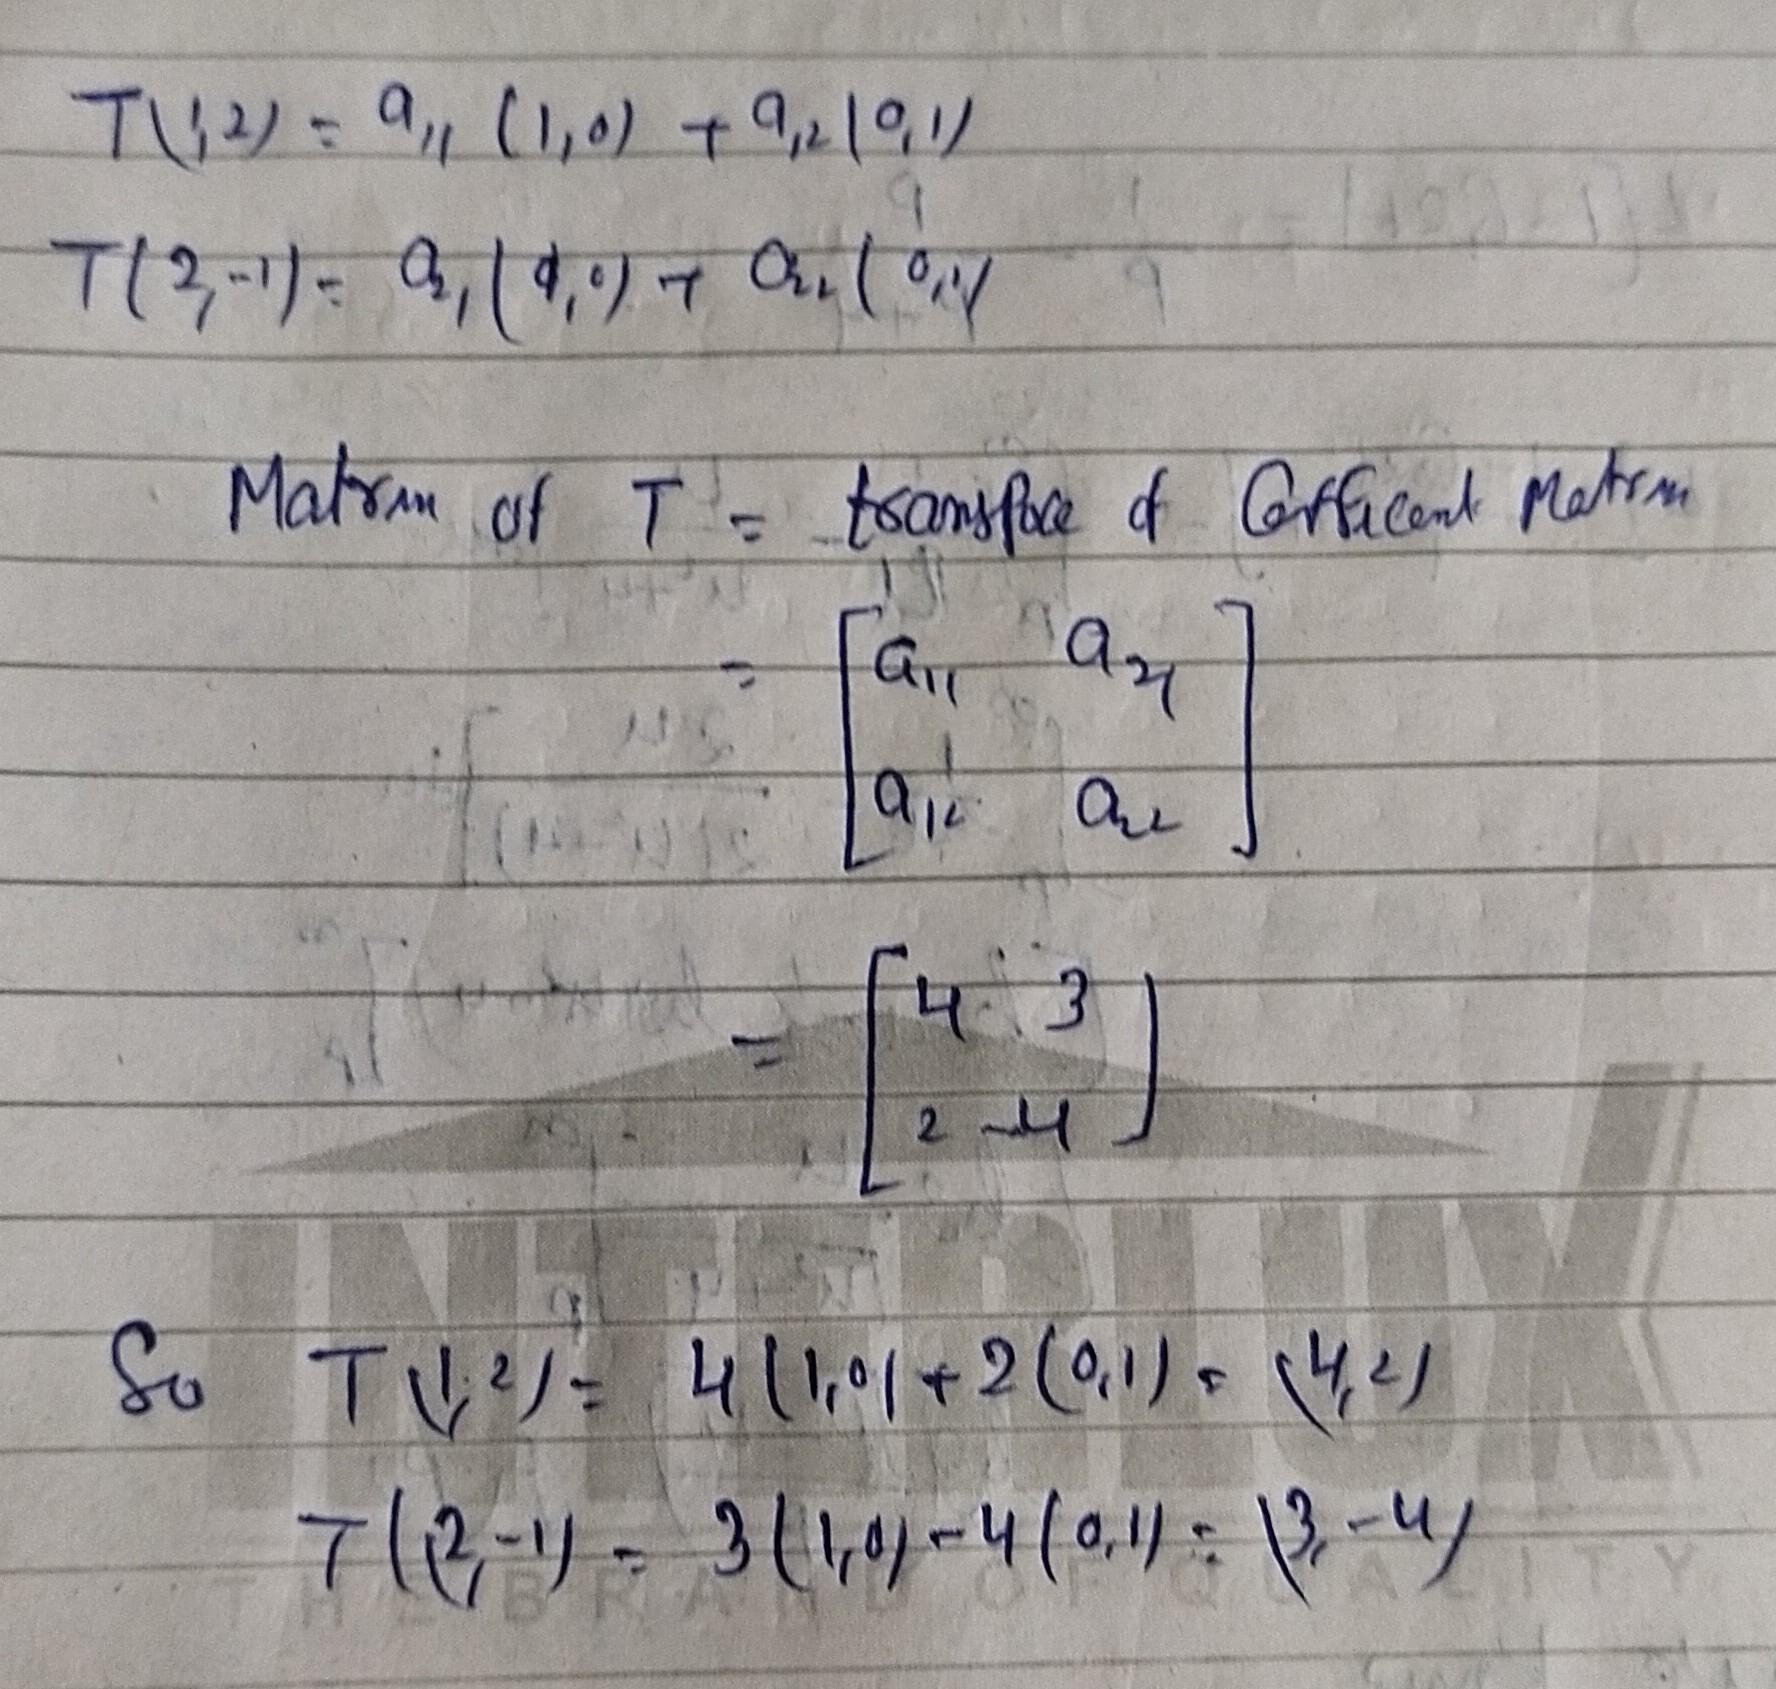 T(1,2) = a11 (1,0) + a12 (0,1)
T(2,-1) = a21 (1,0) + a22 (0,1)
Matrix of T = transpose of Coefficent Matrix
= [ a11 a21
a12 a22 ]
= [ 4 3
2 -4 ]
So T(1,2) = 4(1,0) + 2(0,1) = (4,2)
T(2,-1) = 3(1,0) - 4(0,1) = (3,-4)
INTERLUX
THE BRAND OF QUALITY